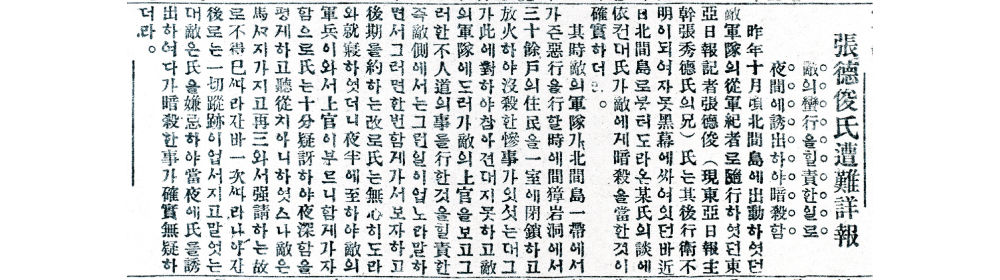 張德俊氏遭難詳報
敵의蠻行을힐責한일로
夜間에誘出하야暗殺함
昨年十月頃北間島에出動하엿던
敵軍隊의從軍記者로隨行하엿던東
亞日報記者張德俊(現東亞日報主
幹張秀德氏의兄)氏는其後行衛不
明이되여자못黑幕에싸여잇던바近
日北間島로붓터도라온某氏의談에
依컨대氏가敵에게暗殺을當한것이
確實하더
其時敵의軍隊가北間島一帶에서
가즌惡行을行할時에間獐岩洞에서
三十餘戶의住民을一室에閉鎖하고
放火하야沒殺한慘事가잇섯는대그
가此에對하야참아견대지못하고敵
의軍隊에도러가敵의上官을보고그
러한不人道의事를行한것을힐責한
즉敵側에서는그런일이업노라말하
면서그러면한번함게가서보자하고
後期를約하는故로氏는無心히도라
와就寢하엿더니夜半에至하야敵의
軍兵이와서上官이부르니함게가자
함으로氏는十分疑訝하야夜深함을
평게하고聽從치아니하엿스나敵은
馬까지가지고再三와서强請하는故
로不得已싸라갓바一次싸라나아간
後로는一切蹤跡이업서지고말엇는
대敵은氏를嫌忌하야當夜에氏를誘
出하여다가暗殺한事가確實無疑하
더라。